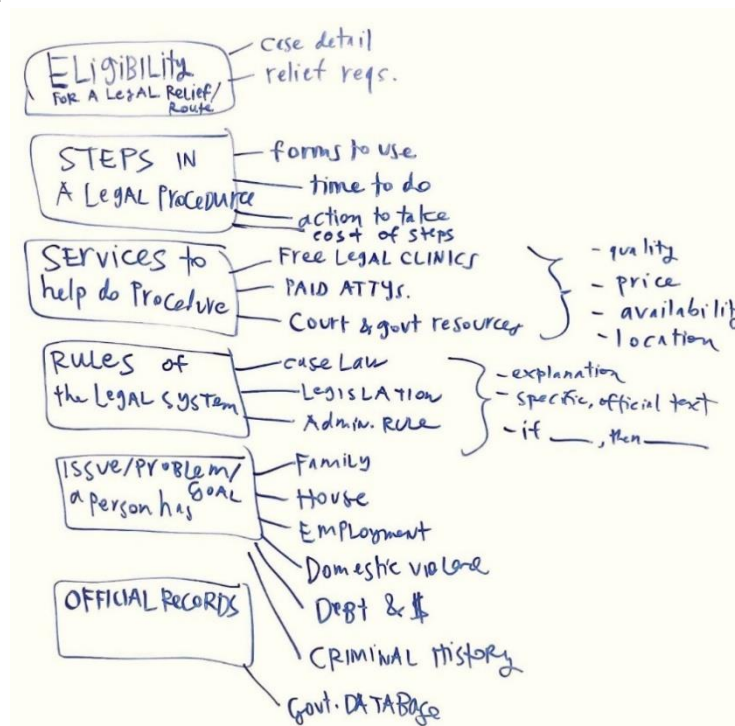 ELigiBILity
FOR A LegAL ReLief/
Route
case detail
relief reqs.
STEPS IN
A LegAL PRoceDURE
forms to use
time to do
action to take
cost of steps
SERvices to
help do Procedure
Free LegAL CLINICS
PAID ATTYs.
Court & govt resources
- quality
- price
- availability
- location
RULes of
the LegAL SYSTEM
case Law
LegISLATION
Admin. RULE
- explanation
- specific, official text
- if ____, then ____
ISSUE/PROBLEM/
GOAL
a person has
FAMily
House
EMPLOYMENT
Domestic violence
DEBT & $
OFFICIAL RECORDS
CRIMINAL HISTORY
Govt. DATABase